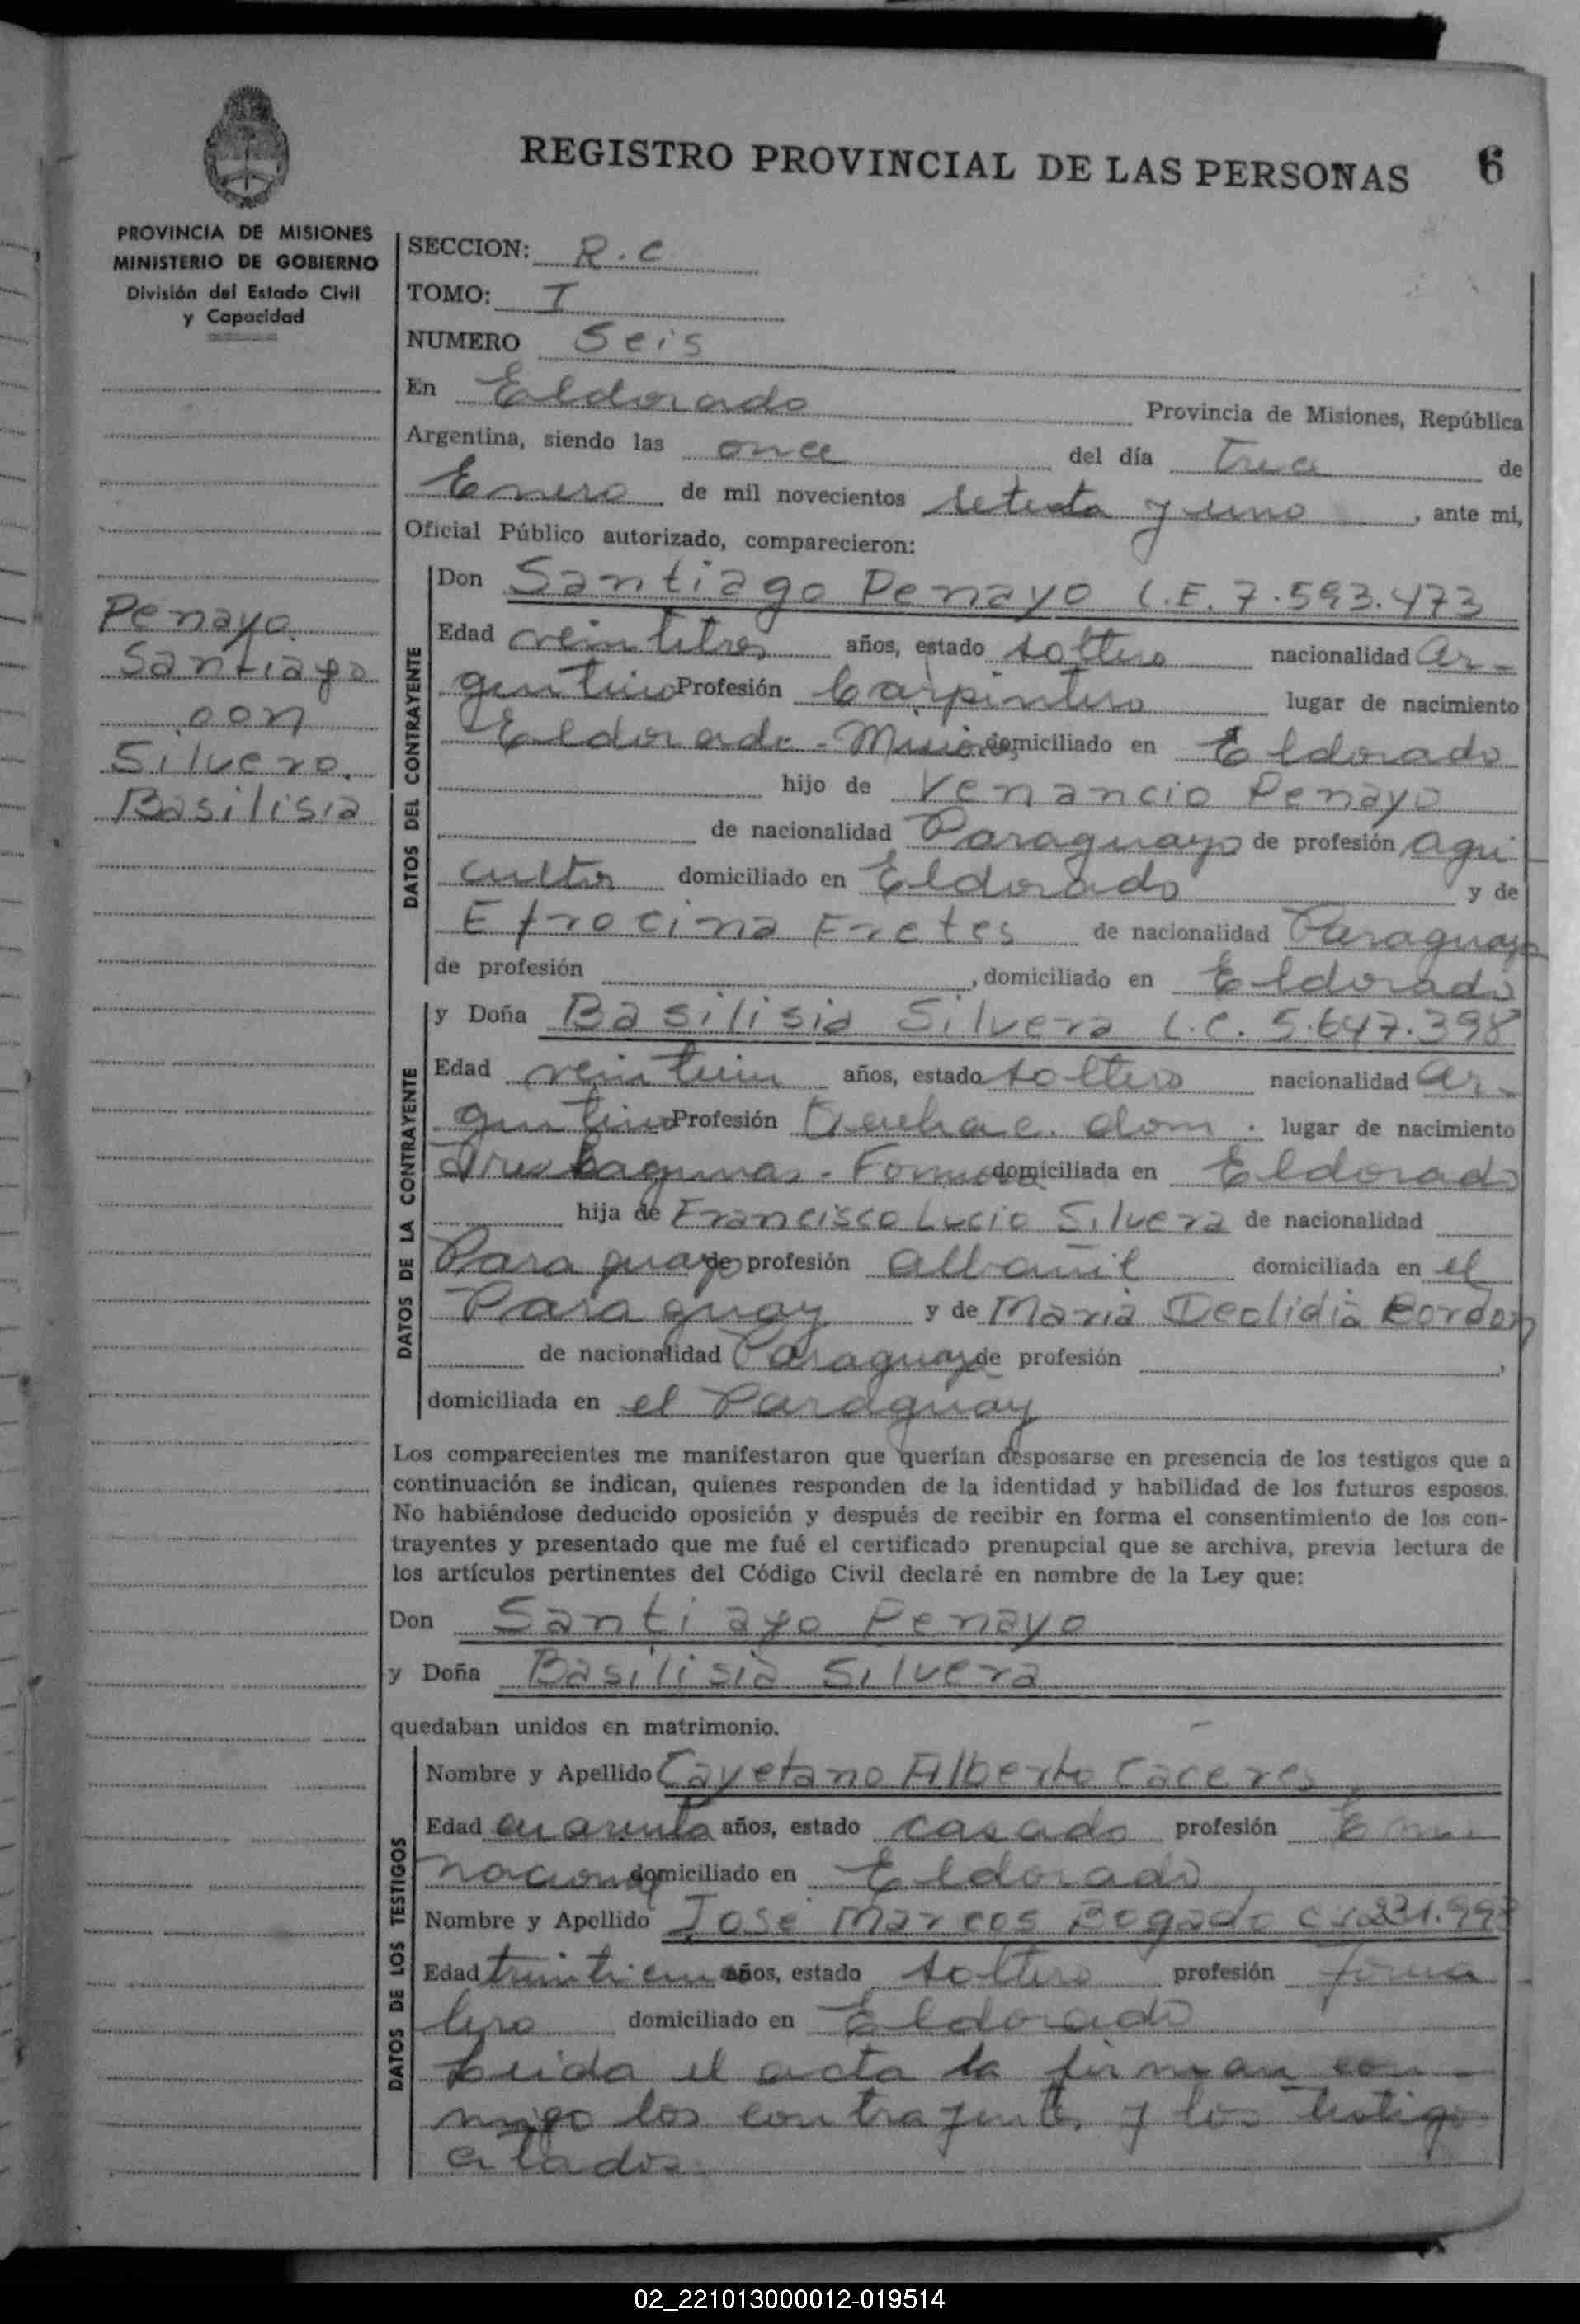 REGISTRO PROVINCIAL DE LAS PERSONAS 6
PROVINCIA DE MISIONES
MINISTERIO DE GOBIERNO
División del Estado Civil
y Capacidad
Penayo
Santiago
con
Silvero
Basilisia
SECCION: R.C
TOMO: I
NUMERO Seis
En Eldorado Provincia de Misiones, República
Argentina, siendo las once del día Trece de
Enero de mil novecientos setenta y uno, ante mi,
Oficial Público autorizado, comparecieron:
DATOS DEL CONTRAYENTE
Don Santiago Penayo L.E. 7.593.473
Edad veintitres años, estado soltero nacionalidad Ar-
gentino Profesión Carpintero lugar de nacimiento
Eldorado - Misiones domiciliado en Eldorado
hijo de Venancio Penayo
de nacionalidad Paraguayo de profesión Agri-
cultor domiciliado en Eldorado y de
Efrocina Fretes de nacionalidad Paraguaya
de profesión , domiciliado en Eldorado
DATOS DE LA CONTRAYENTE
y Doña Basilisia Silvera L.C. 5.647.398
Edad veintiun años, estado soltero nacionalidad Ar-
gentino Profesión dom. lugar de nacimiento
Tres Lagunas - Formosa domiciliada en Eldorado
hija de Francisco Lucio Silvera de nacionalidad
Paraguayo de profesión albañil domiciliada en el
Paraguay y de Maria Deolidia Bordon
de nacionalidad Paraguaya de profesión ,
domiciliada en el Paraguay
Los comparecientes me manifestaron que querían desposarse en presencia de los testigos que a
continuación se indican, quienes responden de la identidad y habilidad de los futuros esposos.
No habiéndose deducido oposición y después de recibir en forma el consentimiento de los con-
trayentes y presentado que me fué el certificado prenupcial que se archiva, previa lectura de
los artículos pertinentes del Código Civil declaré en nombre de la Ley que:
Don Santiago Penayo
y Doña Basilisia Silvera
quedaban unidos en matrimonio.
DATOS DE LOS TESTIGOS
Nombre y Apellido Cayetano Alberto Caceres
Edad cuarenta años, estado casado profesión
nacional domiciliado en Eldorado
Nombre y Apellido Jose Marcos Bogado
Edad treintiun años, estado soltero profesión Jorna-
lero domiciliado en Eldorado
Leida el acta la firman con-
migo los contrayentes y los testigos
citados.
02_221013000012-019514